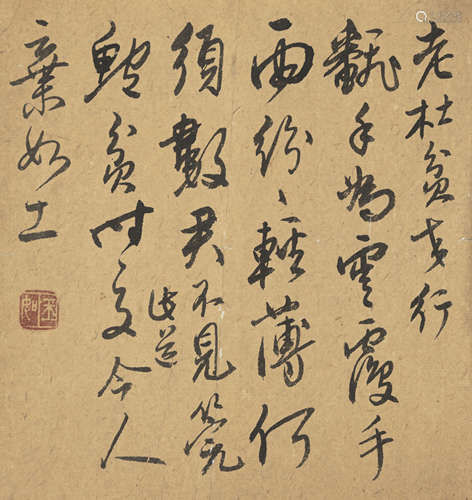 老杜貧交行
飜手為雲覆手
雨紛〻輕薄何
須數君不見筦
此道
鮑貧時交今人
棄如土